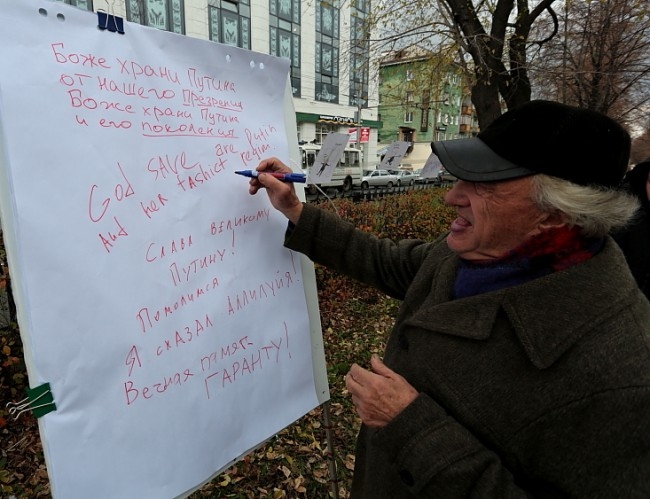 Боже храни Путина
от нашего Презрения
Боже храни Путина
и его поколения
God SAVE are Putin
And her fashict regim
Слава великому
Путину!
Помолимся
Я сказал Аллилуйя!
Вечная памят-
ГАРАНТУ!